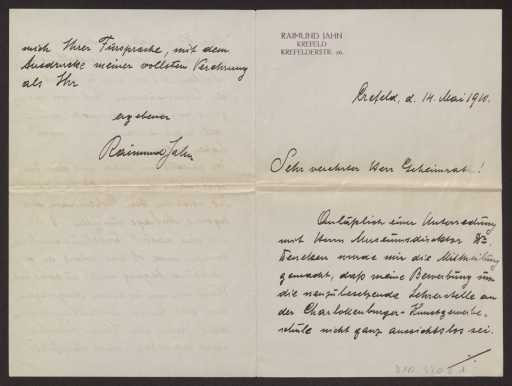 mich Ihrer Fürsprache, mit dem
Ausdrucke meiner vollsten Verehrung
als Ihr
ergebener
Raimund Jahn
RAIMUND JAHN
KREFELD
KREFELDERSTR. 56.
Crefeld, d. 14. Mai 1910.
Sehr verehrter Herr Geheimrat!
Anläßlich einer Unterredung
mit Herrn Museumsdirektor Dr.
Deneken wurde mir die Mitteilung
gemacht, daß meine Bewerbung um
die neuzubesetzende Lehrerstelle an
der Charlottenburger-Kunstgewerbe-
schule nicht ganz aussichtslos sei.